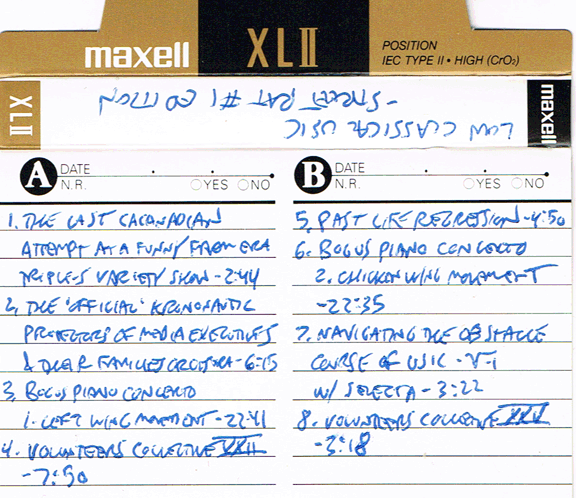 maxell XLII POSITION
IEC TYPE II • HIGH (CrO₂)
XLII
maxell
LOW CLASSICAL USIC
- STREET RAT #1 EDITION
A DATE
N.R. YES NO
1. THE LAST CACANADIAN
ATTEMPT AT A FUNNY FARM ERA
TRIPLE-S VARIETY SHOW - 2:44
2. THE "OFFICIAL" KRONONAUTIC
PROTECTORS OF MEDIA EXECUTIVES
& THEIR FAMILIES - 6:15
3. BOGUS PIANO CONCERTO
1. LEFT WING MOVEMENT - 22:41
4. VOLUNTEERS COLLECTIVE
- 7:50
B DATE
N.R. YES NO
5. PAST LIFE REGRESSION - 4:50
6. BOGUS PIANO CONCERTO
2. CHICKEN WING MOVEMENT
- 22:35
7. NAVIGATING THE OBSTACLE
COURSE OF USIC - V-1
W/ SELECTA - 3:22
8. VOLUNTEERS COLLECTIVE XXV
- 3:18